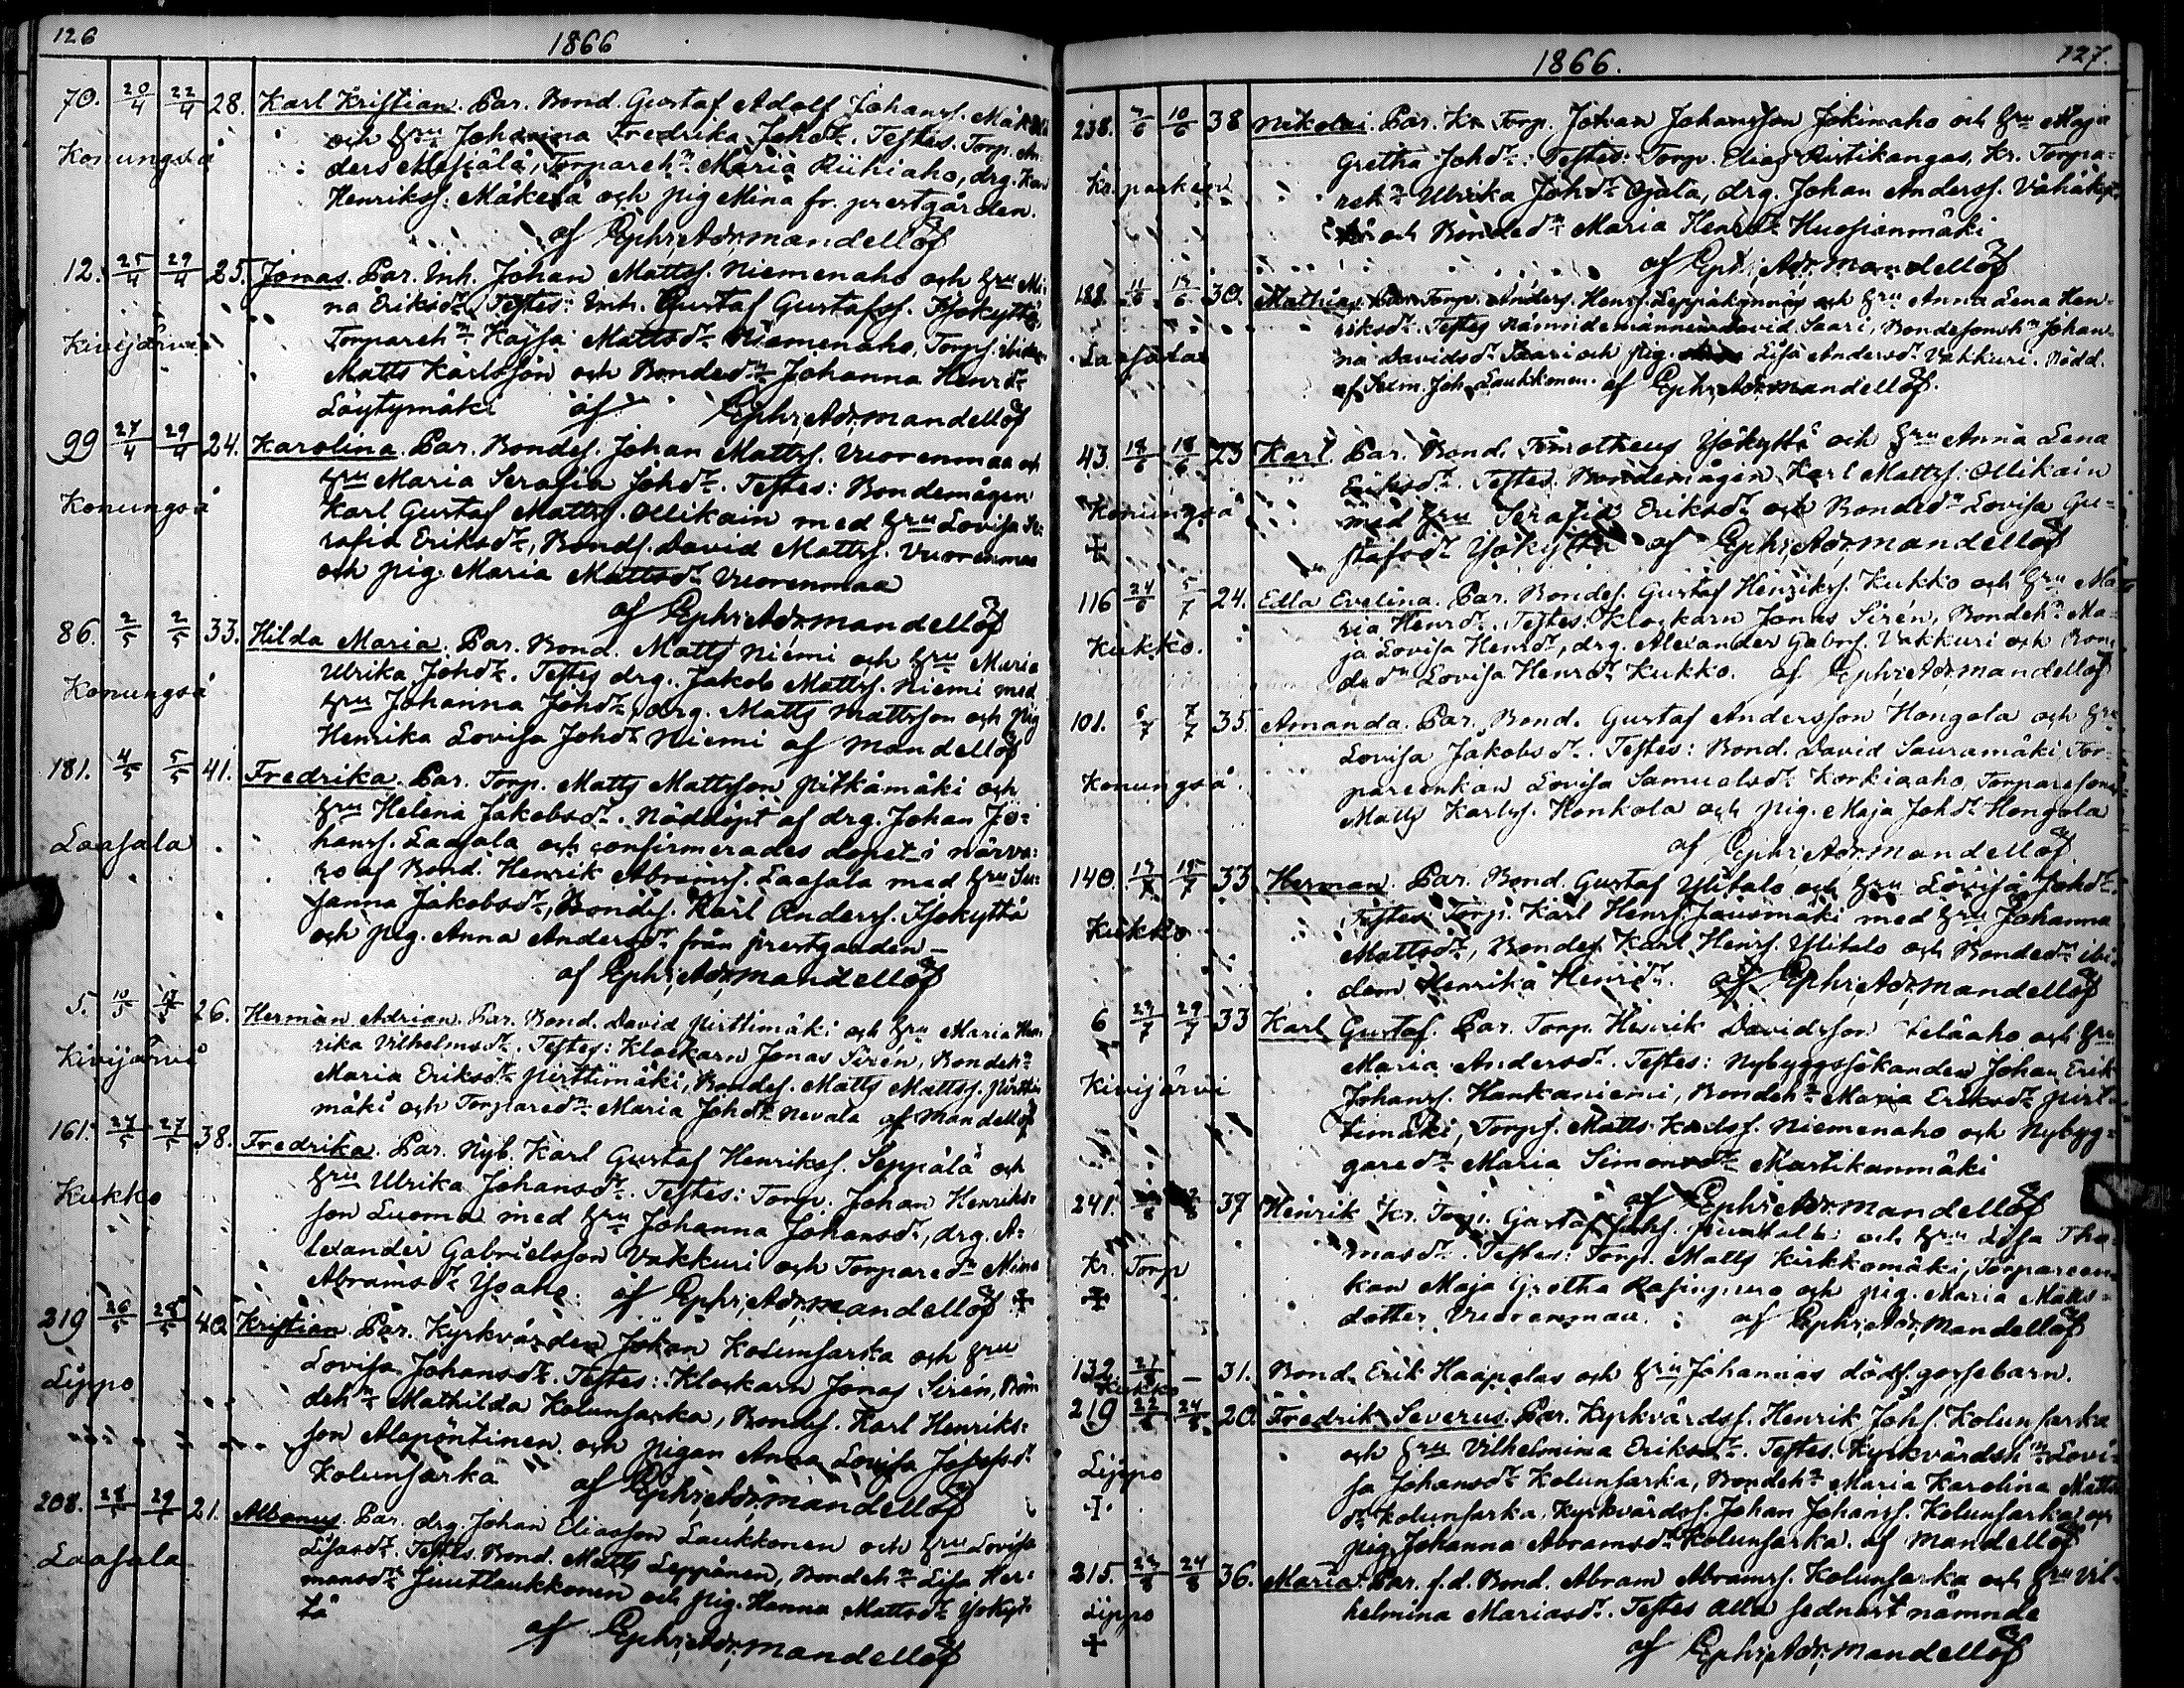 126
1866
70. 20/4 22/4 28. Karl Kristian. Par. Bond. Gustaf Adolf Johanss. Mäkelä
och hru Johanna Fredrika Johdr. Testes. Torp. An
Konungså
ders Mesiälä, Torpareh:n Maria Riihiaho, drg. Karl
Henrikss. Mäkelä och pig Mina fr. prestgården.
af Ephr. Adr. Mandellöf
12. 25/4 29/4 25. Jonas. Par. Inh. Johan Mattss. Niemenaho och hru Mi:
na Eriksdr. Testes: Inh. Gustaf Gustafss. Isokyttö,
Kivijärvi
Torpareh:n Kajsa Mattsdr Niemenaho, Torps. ibidem
Matts Karlsson och Bonded:n Johanna Henrdr
Löytymäki af Ephr. Adr. Mandellöf
99 27/4 29/4 24. Karolina. Par. Bondes. Johan Mattss. Vuorenmaa och
hru Maria Serafia Johdr. Testes: Bondemågen
Konungså
Karl Gustaf Mattss. Ollikain med hru Lovisa Se:
rafia Eriksdr, Bonds. David Mattss. Vuorenmaa
och pig. Maria Mattsdr Vuorenmaa
af Ephr. Adr. Mandellöf
86. 2/5 2/5 33. Hilda Maria. Par. Bond. Matts Niemi och hru Maria
Ulrika Johdr. Testes drg. Jakob Mattss. Niemi med
Konungså
hru Johanna Johdr, drg. Matts Mattsson och pig
Henrika Lovisa Johdr Niemi af Mandellöf
181. 4/5 5/5 41. Fredrika. Par. Torp. Matts Mattsson Pitkämäki och
hru Helena Jakobsdr. Nöddöpt af drg. Johan Jo:
Laasala
hanss. Laasala och confirmerades dopet i närva:
ro af Bond. Henrik Abramss. Laasala med hru Su:
sanna Jakobsdr, Bondes. Karl Anderss. Isokyttö
och pig. Anna Andersdr från prestgården –
af Ephr. Adr. Mandellöf
5. 10/5 26. Herman Adrian. Par. Bond. David Pirttimäki och hru Maria Hen
rika Vilhelmsdr. Testes: Klockarn Jonas Sirén, Bondeh:n
Kivijärvi
Maria Eriksdr Pirttimäki, Bondes. Matts Mattss. Pirtti
mäki och Torpared:n Maria Johdr Nevala af Mandellöf
161. 27/5 27/5 38. Fredrika. Par. Nyb. Karl Gustaf Henrikss. Seppälä och
hru Ulrika Johansdr. Testes: Torp. Johan Henriks:
Kukko
son Luoma med hru Johanna Johansdr, drg. A:
lexander Gabrielsson Vakkuri och Torpared:n Mina
Abramsdr Ysoaho. af Ephr. Adr. Mandellöf +
219 26/5 28/5 40 Kristian Par. Kyrkvärden Johan Kolunsarka och hru
Lovisa Johansdr. Testes: Klockarn Jonas Sirén, Bon
Lippo
deh:n Mathilda Kolunsarka, Bondes. Karl Henriks:
son Alapöntinen och pigan Anna Lovisa Josefsdr
Kolunsarka af Ephr. Adr. Mandellöf
208. 28/5 29/5 21. Albanus. Par. drg. Johan Eliasson Laukkonen och hru Lovisa
Lisasdr. Testes. Bond. Matts Leppänen, Bondeh:n Lisa Her:
Laasala
mansdr Juutlaukkonen och pig. Hanna Mattsdr Yokyt:
tö
af Ephr. Adr. Mandellöf
1866.
127.
238. 7/6 10/6 38 Nikolai. Par. Kr. Torp. Johan Johansson Jokimaho och hru Maja
Gretha Johdr: Testes: Torp. Elias Ristikangas, Kr. Torpa:
Kr. parken
reh:n Ulrika Johdr Ojala, drg. Johan Anderss. Vähäkyt
tö och Bonded:n Maria Henrdr Huosianmäki
af Ephr. Adr. Mandellöf
188. 11/6 17/6 30. Mathias. Par. Torp. Anders Henrs. Leppäkynnäs och hru Anna Lena Hen-
riksdr. Testes Nämndemannen David Saari, Bondesonsh:n Johan-
Laasala
na Davidsdr Saari och pig. Lisa Andersdr Vakkuri. Nödd.
af Sexm. Joh. Laukkonen. af Ephr. Adr. Mandellöf.
43. 18/6 18/6 23 Karl. Par. Bond. Timotheus Yökyttö och hru Anna Lena
Eriksdr. Testes. Bondemågen Karl Mattss. Ollikain
Konungså
med hru Serafia Eriksdr och Bonded:n Lovisa Gu-
+
stafsdr Yökyttö af Ephr. Adr. Mandellöf
116 24/6 5/7 24. Edla Evelina. Par. Bondes. Gustaf Henrikss. Kukko och hru Ma
ria Henrdr. Testes. Klockarn Jonas Sirén, Bondeh:n Ma-
Kukko.
ja Lovisa Henrdr, drg. Alexander Gabrs. Vakkuri och Bon-
ded:n Lovisa Henrdr Kukko. af Ephr. Adr. Mandellöf
101. 6/7 7/7 35. Amanda. Par. Bond. Gustaf Andersson Hongola och hru
Lovisa Jakobsdr. Testes: Bond. David Sauramäki, Tor-
Konungså.
pareenkan Lovisa Samuelsdr Korkiaaho, Torparesonen
Matts Karlss. Honkola och pig. Maja Johdr Hongola
af Ephr. Adr. Mandellöf
140. 14/7 15/7 33 Herman. Par. Bond. Gustaf Ylitalo och hru Lovisa Johdr.
Testes Torp. Karl Henrs. Jausmäki med hru Johanna
Kukko
Mattsdr, Bondes. Karl Henrs. Ylitalo och Bonded:n ibi-
dem Henrika Henrdr. af Ephr. Adr. Mandellöf
6 27/7 29/7 33 Karl Gustaf. Par. Torp. Henrik Davidsson Teläaho och hru
Maria Andersdr. Testes: Nybyggssökanden Johan Erik
Kivijärvi
Johanss. Hankaniemi, Bondeh:n Maria Eriksdr Pirt-
timäki, Torps. Matts Karlss. Niemenaho och Nybyg-
gared:n Maria Simonsdr Martikanmäki
af Ephr. Adr. Mandellöf
241. 39 Henrik Kr. Torp. Gustaf och hru Lisa Tho-
masdr. Testes: Torp. Matts Kirkkomäki, Torpareen-
Kr. Torp
kan Maja Gretha Rasinpuro och pig. Maria Matts-
+
dotter Vuorenmaa. af Ephr. Adr. Mandellöf
132 21/8 – 31. Bond. Erik Haapolas och hru Johannas dödf. gossebarn.
Kukko
219 22/8 24/8 20. Fredrik Severus. Par. Kyrkvärdss. Henrik Johs. Kolunsarka
och hru Vilhelmina Eriksdr. Testes. Kyrkvärdsh:n Lovi-
Lippo
sa Johansdr Kolunsarka, Bondeh:n Maria Karolina Matts
+
dr Kolunsarka, Kyrkvärdss. Johan Johanss. Kolunsarka och
pig. Johanna Abramsdr Kolunsarka. af Mandellöf
215. 23/8 24/8 36. Maria. Par. f.d. Bond. Abram Abramss. Kolunsarka och hru Vil-
Lippo
helmina Mariasdr. Testes alla sednast nämnde
+
af Ephr. Adr. Mandellöf